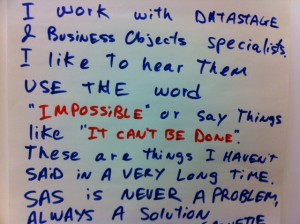 I work with DATASTAGE
& Business Objects specialists.
I like to hear Them
USE THE word
"IMPOSSIBLE" or say Things
like "IT CAN'T BE DONE".
These are things I HAVEN'T
SAID IN A VERY LONG TIME.
SAS is NEVER A PROBLEM,
ALWAYS A Solution